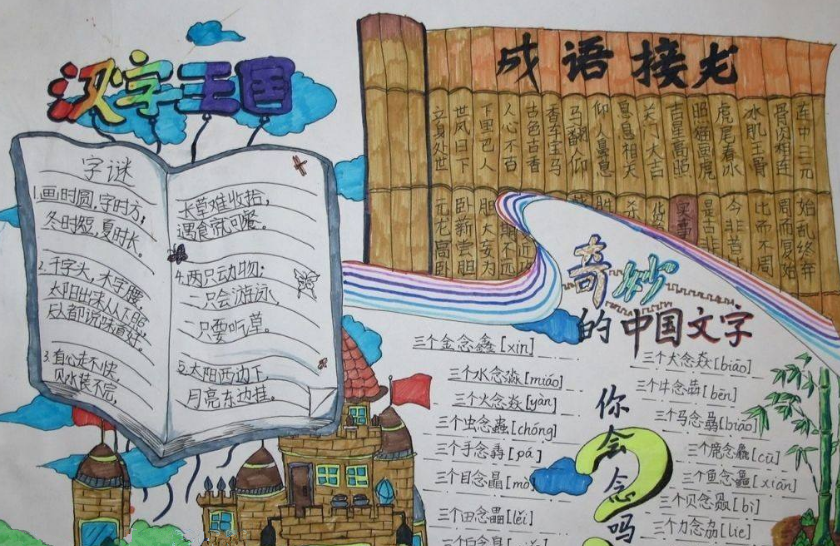 汉字王国
成语接龙
字谜
1.画时圆,字时方,
冬时短,夏时长。
2.千字头,木字腰,
太阳出来从下照,
人人都说味道好。
3.有心走不快,
见水装不完,
长草难收拾,
遇食就可餐。
4.两只动物:
一只会游泳,
一只要吃草。
5.太阳西边下
月亮东边挂。
连中三元
骨肉相连
水肌玉骨
虎尾春冰
照猫画虎
吉星高照
关门大吉
息息相关
仰人鼻息
马翻仰
香车宝马
古色古香
人心不古
下里巴人
世风日下
立身处世
始乱终弃
周而复始
比而不周
今非昔比
是古非今
胆大妄为
卧薪尝胆
元龙高卧
奇妙
的中国文字
你会念吗?
三个金念鑫[xin]
三个水念淼[miǎo]
三个火念焱[yàn]
三个虫念蟲[chóng]
三个手念掱[pá]
三个目念瞐[mò]
三个田念畾[lěi]
三个犬念猋[biāo]
三个牛念犇[bēn]
三个马念骉[biāo]
三个鹿念麤[cū]
三个鱼念鱻[xiān]
三个贝念赑[bì]
三个力念劦[lie]